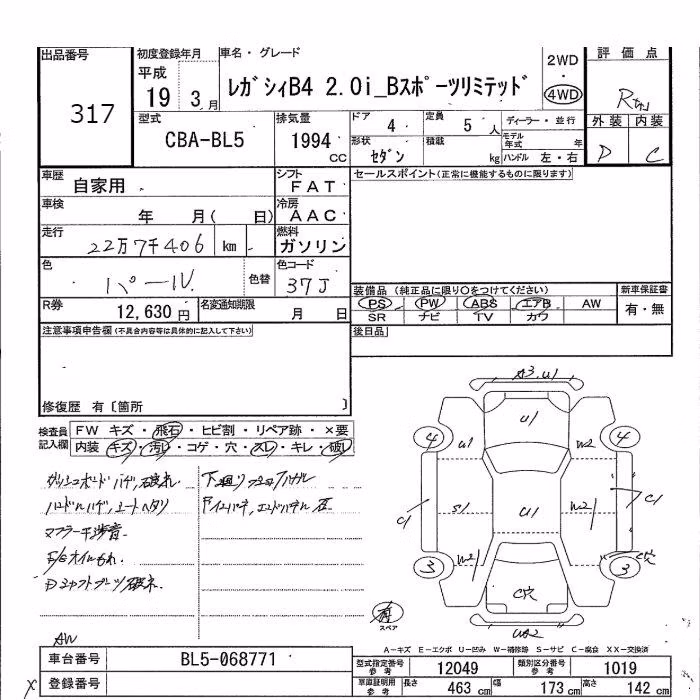 出品番号
317
初度登録年月
平成
19 3月
車名・グレード
レガシィB4 2.0i_Bスポーツリミテッド
2WD
・
4WD
評価点
外装 内装
D C
型式
CBA-BL5
排気量
1994
cc
ドア
4
定員
5 人
ディーラー・並行
モデル年式 年
形状
セダン
積載
kg
ハンドル 左・右
車歴
自家用
シフト
FAT
セールスポイント(正常に機能するものに限ります)
車検
年 月( 日)
冷房
AAC
走行
22万7千406 km
燃料
ガソリン
色
パール
色替
色コード
37J
装備品 (純正品に限り○をつけてください)
新車保証書
PS PW ABS エアB AW
SR ナビ TV カワ
有・無
R券
12,630 円
名変通知期限
月 日
後日品
注意事項申告欄(不具合内容等は具体的に記入して下さい)
修復歴 有〔箇所 〕
検査員記入欄
FW キズ・飛石・ヒビ割・リペア跡・×要
内装 キズ・汚レ・コゲ・穴・スレ・キレ・破レ
ダッシュボードハゲ,破れ
ハンドルハゲ,シートヘタリ
マフラー干渉音
A3 U1
U1
4
4
U1
W2
C1
S1
U1
W2
C1
W2
3
3
C穴
C穴
スペア
A-キズ E-エクボ U-凹み W-補修跡 S-サビ C-腐食 XX-交換済
AW
車台番号
BL5-068771
登録番号
型式指定番号参考
12049
類別区分番号参考
1019
車庫証明用参考
長さ 463 cm 幅 173 cm 高さ 142 cm